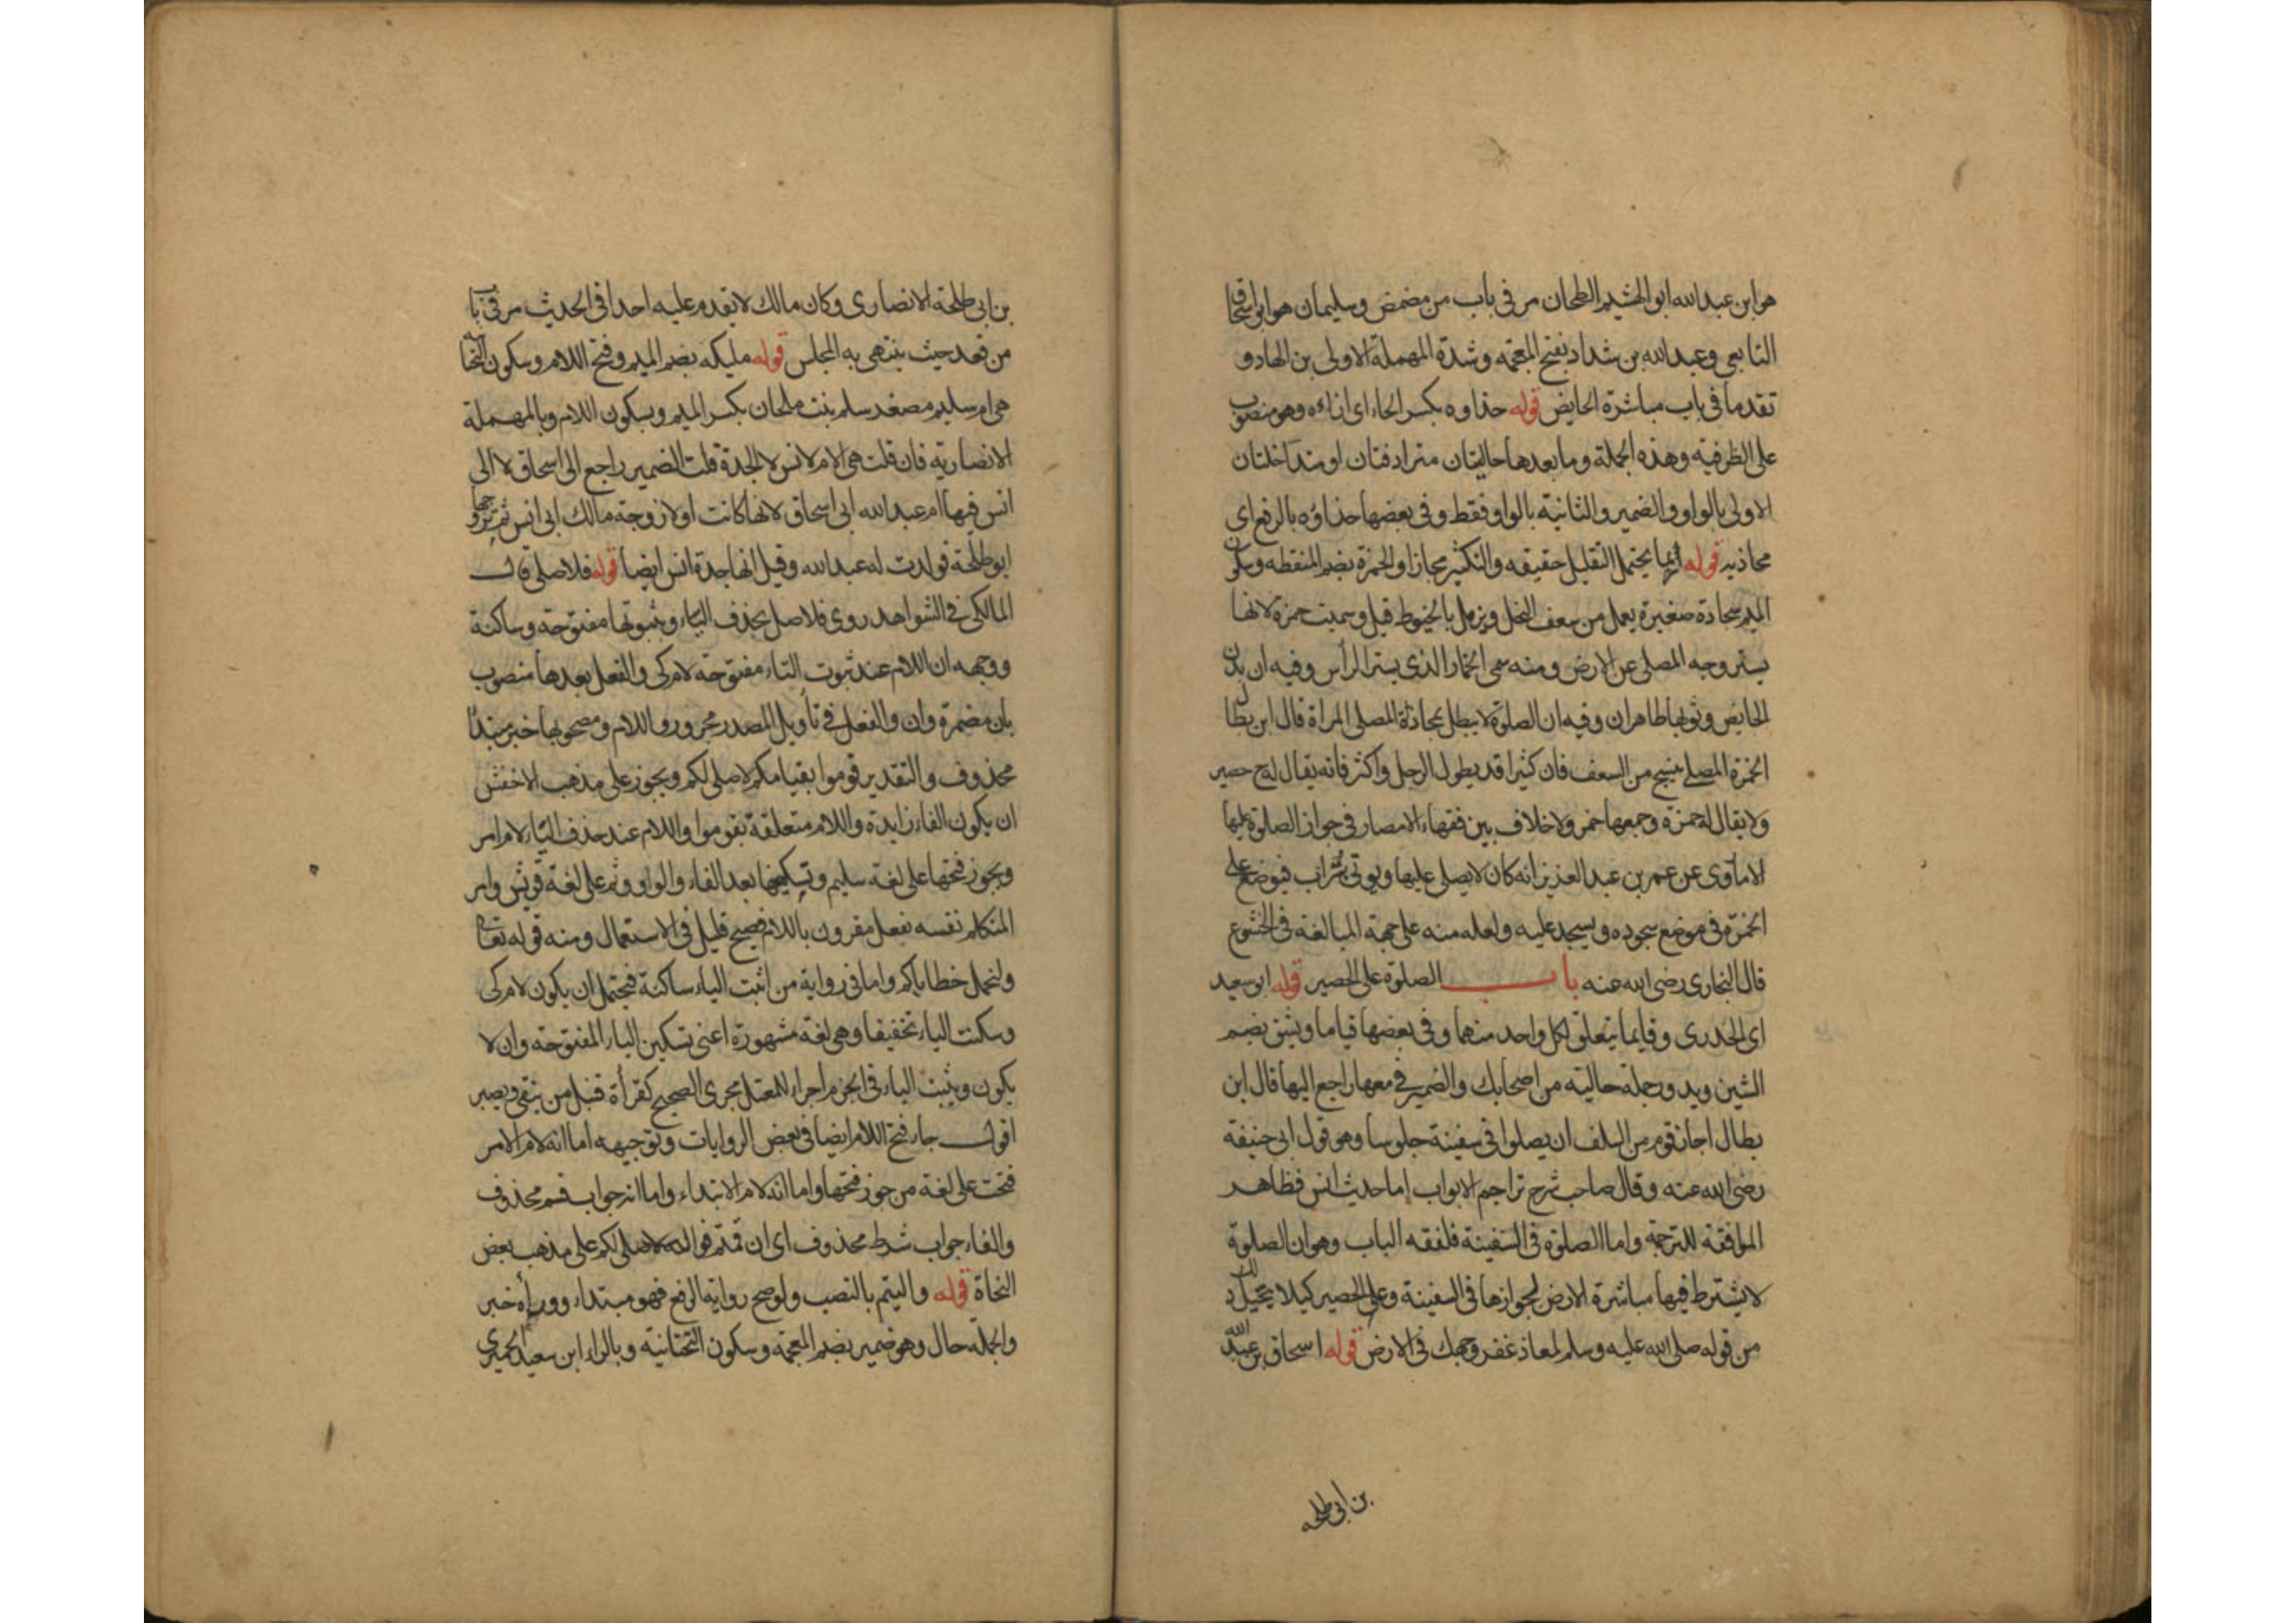 هو ابن عبد الله ابو الهشيم الطحان مر فى باب من مضمض وسليمان هو ابو اسحاق
التابعى وعبد الله بن شداد بفتح المعجمه وشدة المهملة الاولى بن الهاد و
تقدما فى باب مباشرة الحايض قوله حذاوه بكسر الحاء اى ازاءه وهو منصوب
على الظرفيه وهذه الجملة وما بعدها حاليتان مترادفتان او متداخلتان
الاولى بالواو والضمير والثانية بالواو فقط وفى بعضها حذاؤه بالرفع اى
محاذيه قوله ربما يحتمل التقليل حقيقه والتكثير مجازا والخمرة بضم المنقطه وسكون
الميم سجادة صغيرة يعمل من سعف النخل ويزمل بالخيوط قيل وسميت خمرة لانها
يستر وجه المصلى عن الارض ومنه سمى الخمار الذى يستر الرأس وفيه ان بدن
الحايض وثوبها طاهران وفيه ان الصلوة لا يبطل بمحاذاة المصلى المراة قال ابن بطال
الخمرة المصلى ينسج من السعف فان كثيرا قد يطول الرجل واكثر فانه يقال له ح حصير
ولا يقال له خمرة وجمعها خمر ولا خلاف بين فقهاء الامصار فى جواز الصلوة عليها
الا ما روى عن عمر بن عبد العزيز انه كان لا يصلى عليها ويوتى بتراب فيوضع على
الخمرة فى موضع سجوده ويسجد عليه ولعله منه على جهة المبالغة فى الخشوع
قال البخارى رضى الله عنه باب الصلوة على الحصير قوله ابو سعيد
اى الخدرى وقايما يتعلق لكل واحد منهما وفى بعضها قياما ويشق بضم
الشين ويدور جملة حاليته من اصحابك والضمير فى معها راجع اليها قال ابن
بطال اجاز قوم من السلف ان يصلوا فى سفينة جلوسا وهو قول ابى حنيفة
رضى الله عنه وقال صاحب شرح تراجم الابواب اما حديث انس فظاهر
الموافقة للترجمة واما الصلوة فى السفينة فلفقه الباب وهو ان الصلوة
لا يشترط فيها مباشرة الارض لجوازها فى السفينة وعلى الحصير كيلا يتخيل ذلك
من قوله صلى الله عليه وسلم لمعاذ عفر وجهك فى الارض قوله اسحاق بن عبد الله
بن ابى طلحه
بن ابى طلحة الانصارى وكان مالك لا يقدم عليه احدا فى الحديث مر فى باب
من قعد حيث ينتهى به المجلس قوله مليكه بضم الميم وفتح اللام وسكون التحتانية
هى ام سليم مصغر سلم بنت ملحان بكسر الميم وبسكون اللام وبالمهملة
الانصاريه فان قلت هى الام لانس لا الجدة قلت الضمير راجع الى اسحاق لا الى
انس فيها ام عبد الله ابى اسحاق لانها كانت اولا زوجة مالك ابى انس ثم تزوجها
ابو طلحة فولدت له عبد الله وقيل انها جدة انس ايضا قوله فلاصلى قال
المالكى فى الشواهد روى فلاصل بحذف الياء وبثبوتها مفتوحة وساكنة
ووجهه ان اللام عند ثبوت التاء مفتوحة لام كى والفعل بعدها منصوب
بان مضمرة وان والفعل فى تاويل المصدر مجرور واللام ومصحوبها خبر مبتدأ
محذوف والتقدير قوموا بقيامكم لاصلى لكم ويجوز على مذهب الاخفش
ان يكون الفاء زايدة واللام متعلقة بقوموا واللام عند حذف الياء لام امر
ويجوز فتحها على لغة سليم وتسكينها بعد الفاء والواو وثم على لغة قريش وامر
المتكلم نفسه بفعل مقرون باللام فصيح قليل فى الاستعمال ومنه قوله تعالى
ولنحمل خطاياكم واما فى رواية من اثبت الياء ساكنة فيحتمل ان يكون لام كى
وسكنت الياء تخفيفا وهى لغة مشهورة اعنى تسكين الياء المفتوحة وان لا
يكون ويثبت الياء فى الجزم اجراء للمعتل مجرى الصحيح كقرأة قنبل من يتقى ويصبر
اقول جاء فتح اللام ايضا فى بعض الروايات وتوجيهه اما انه لام الامر
فتحت على لغة من جوز فتحها واما انه لام الابتداء واما انه جواب قسم محذوف
والفاء جواب شرط محذوف اى ان قمتم فوالله لاصلى لكم على مذهب بعض
النحاة قوله واليتيم بالنصب ولو صح رواية الرفع فهو مبتداء ووراءه خبر
والجملة حال وهو ضمير بضم المعجمة وسكون التحتانية وبالراء ابن سعيد الحميرى